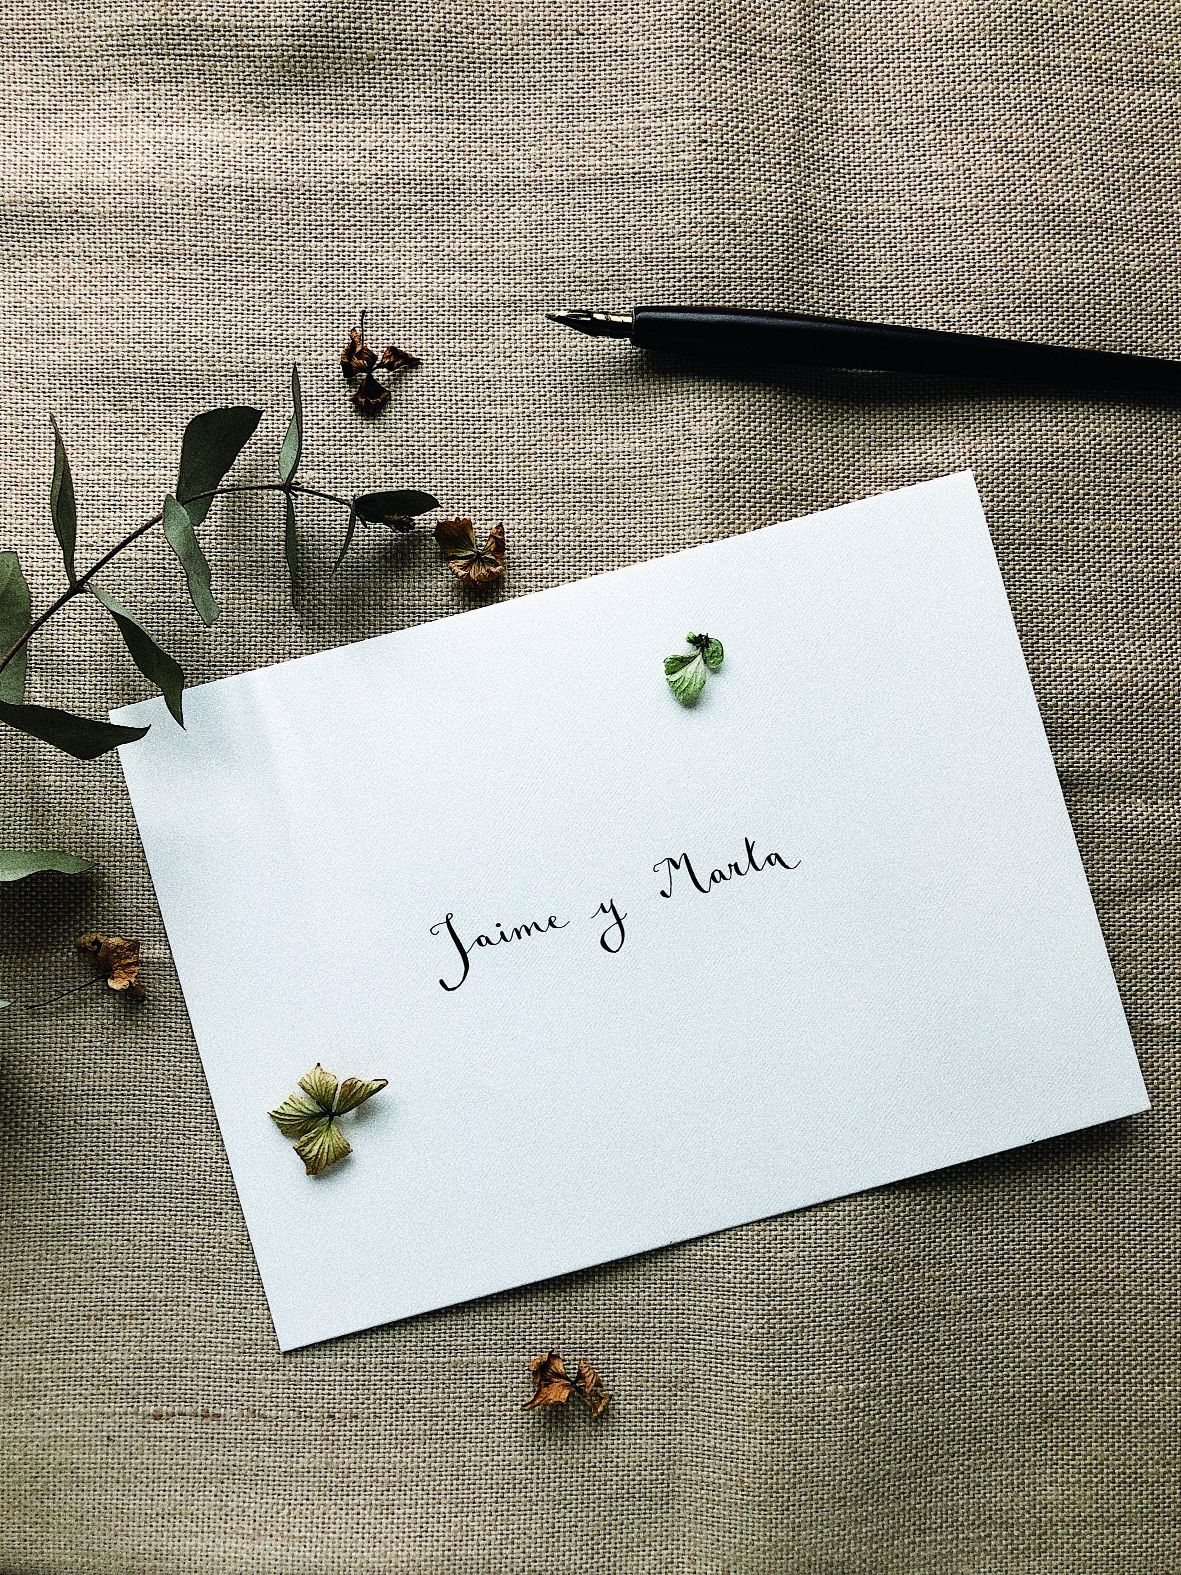 Jaime y Marta